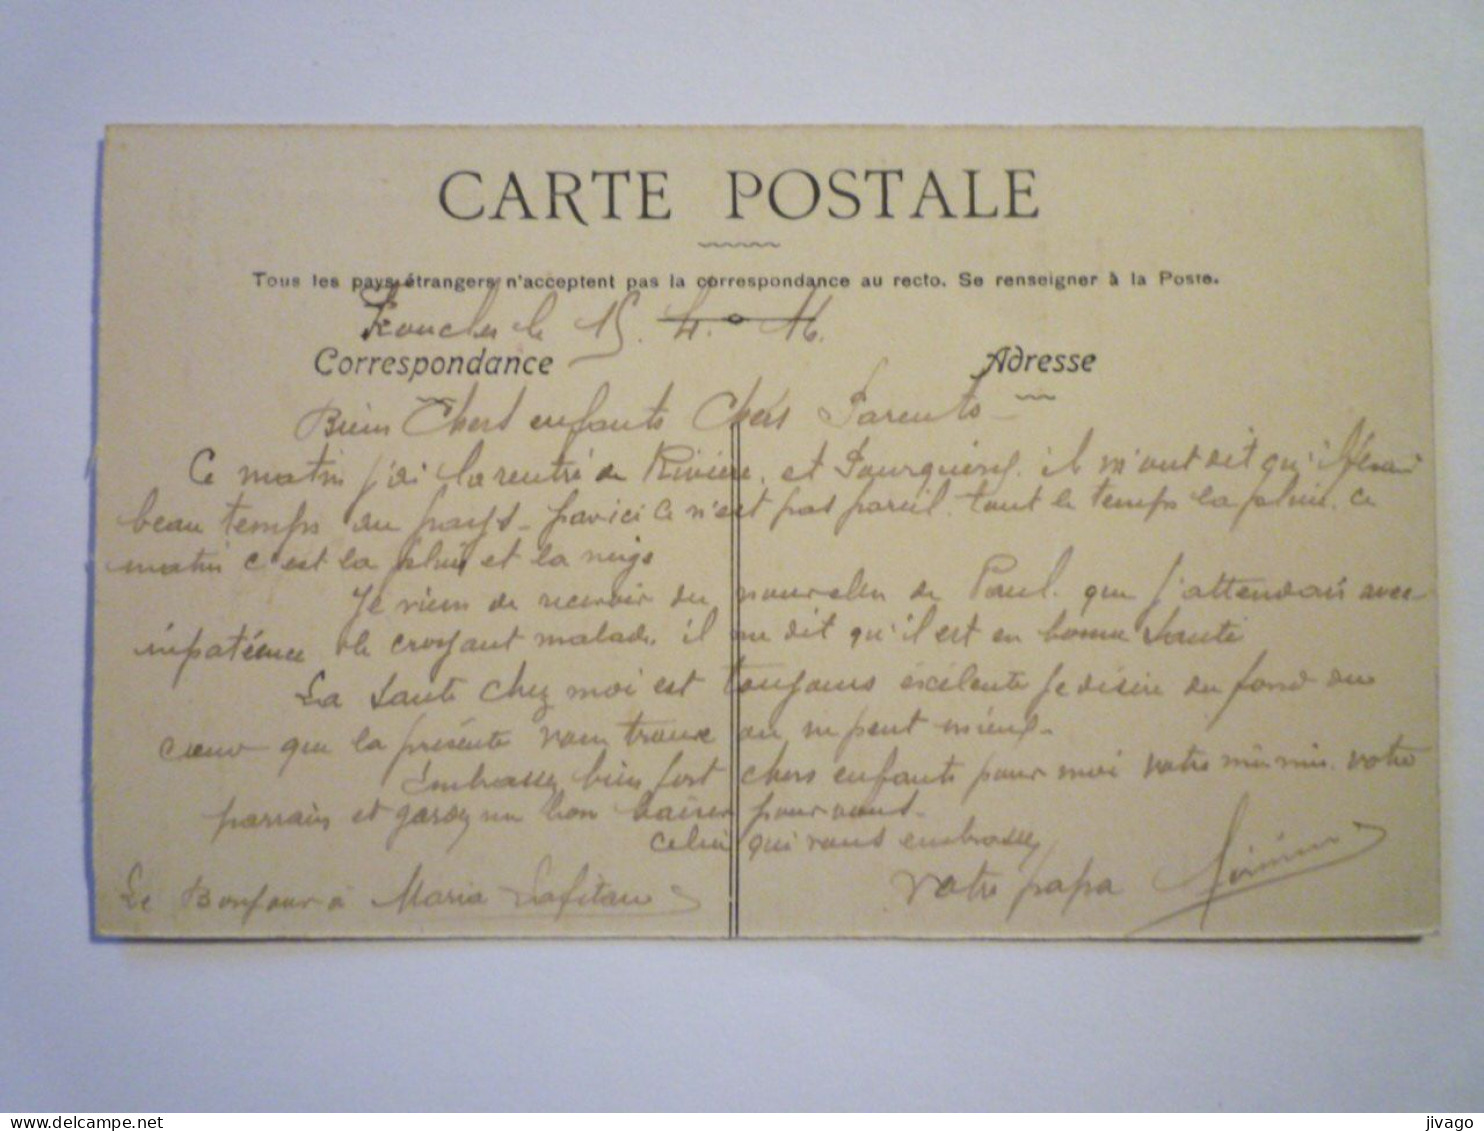 CARTE POSTALE
Tous les pays étrangers n'acceptent pas la correspondance au recto. Se renseigner à la Poste.
le 15. 4. 16.
Correspondance
Adresse
Bien Chers enfants Chers Parents
Ce matin j'ai la rentré de Rivière, et il m'ont dit qu'il
beau temps au pays. par ici ce n'est pas pareil. tout le temps la pluie. ce
matin c'est la pluie et la neige
Je viens de recevoir des nouvelles de Paul. que j'attendais avec
inpatience le croyant malade. il me dit qu'il est en bonne Santé
La Santé chez moi est toujours éxélente je désire du fond du
cœur que la présente vous trouve on ne peut mieux.
Embrassez bien fort chers enfants pour moi votre mémé. votre
parrain et gardez un bon baiser pour vous.
celui qui vous embrasse
votre papa
Le Bonjour à Maria Lafitau
jivago